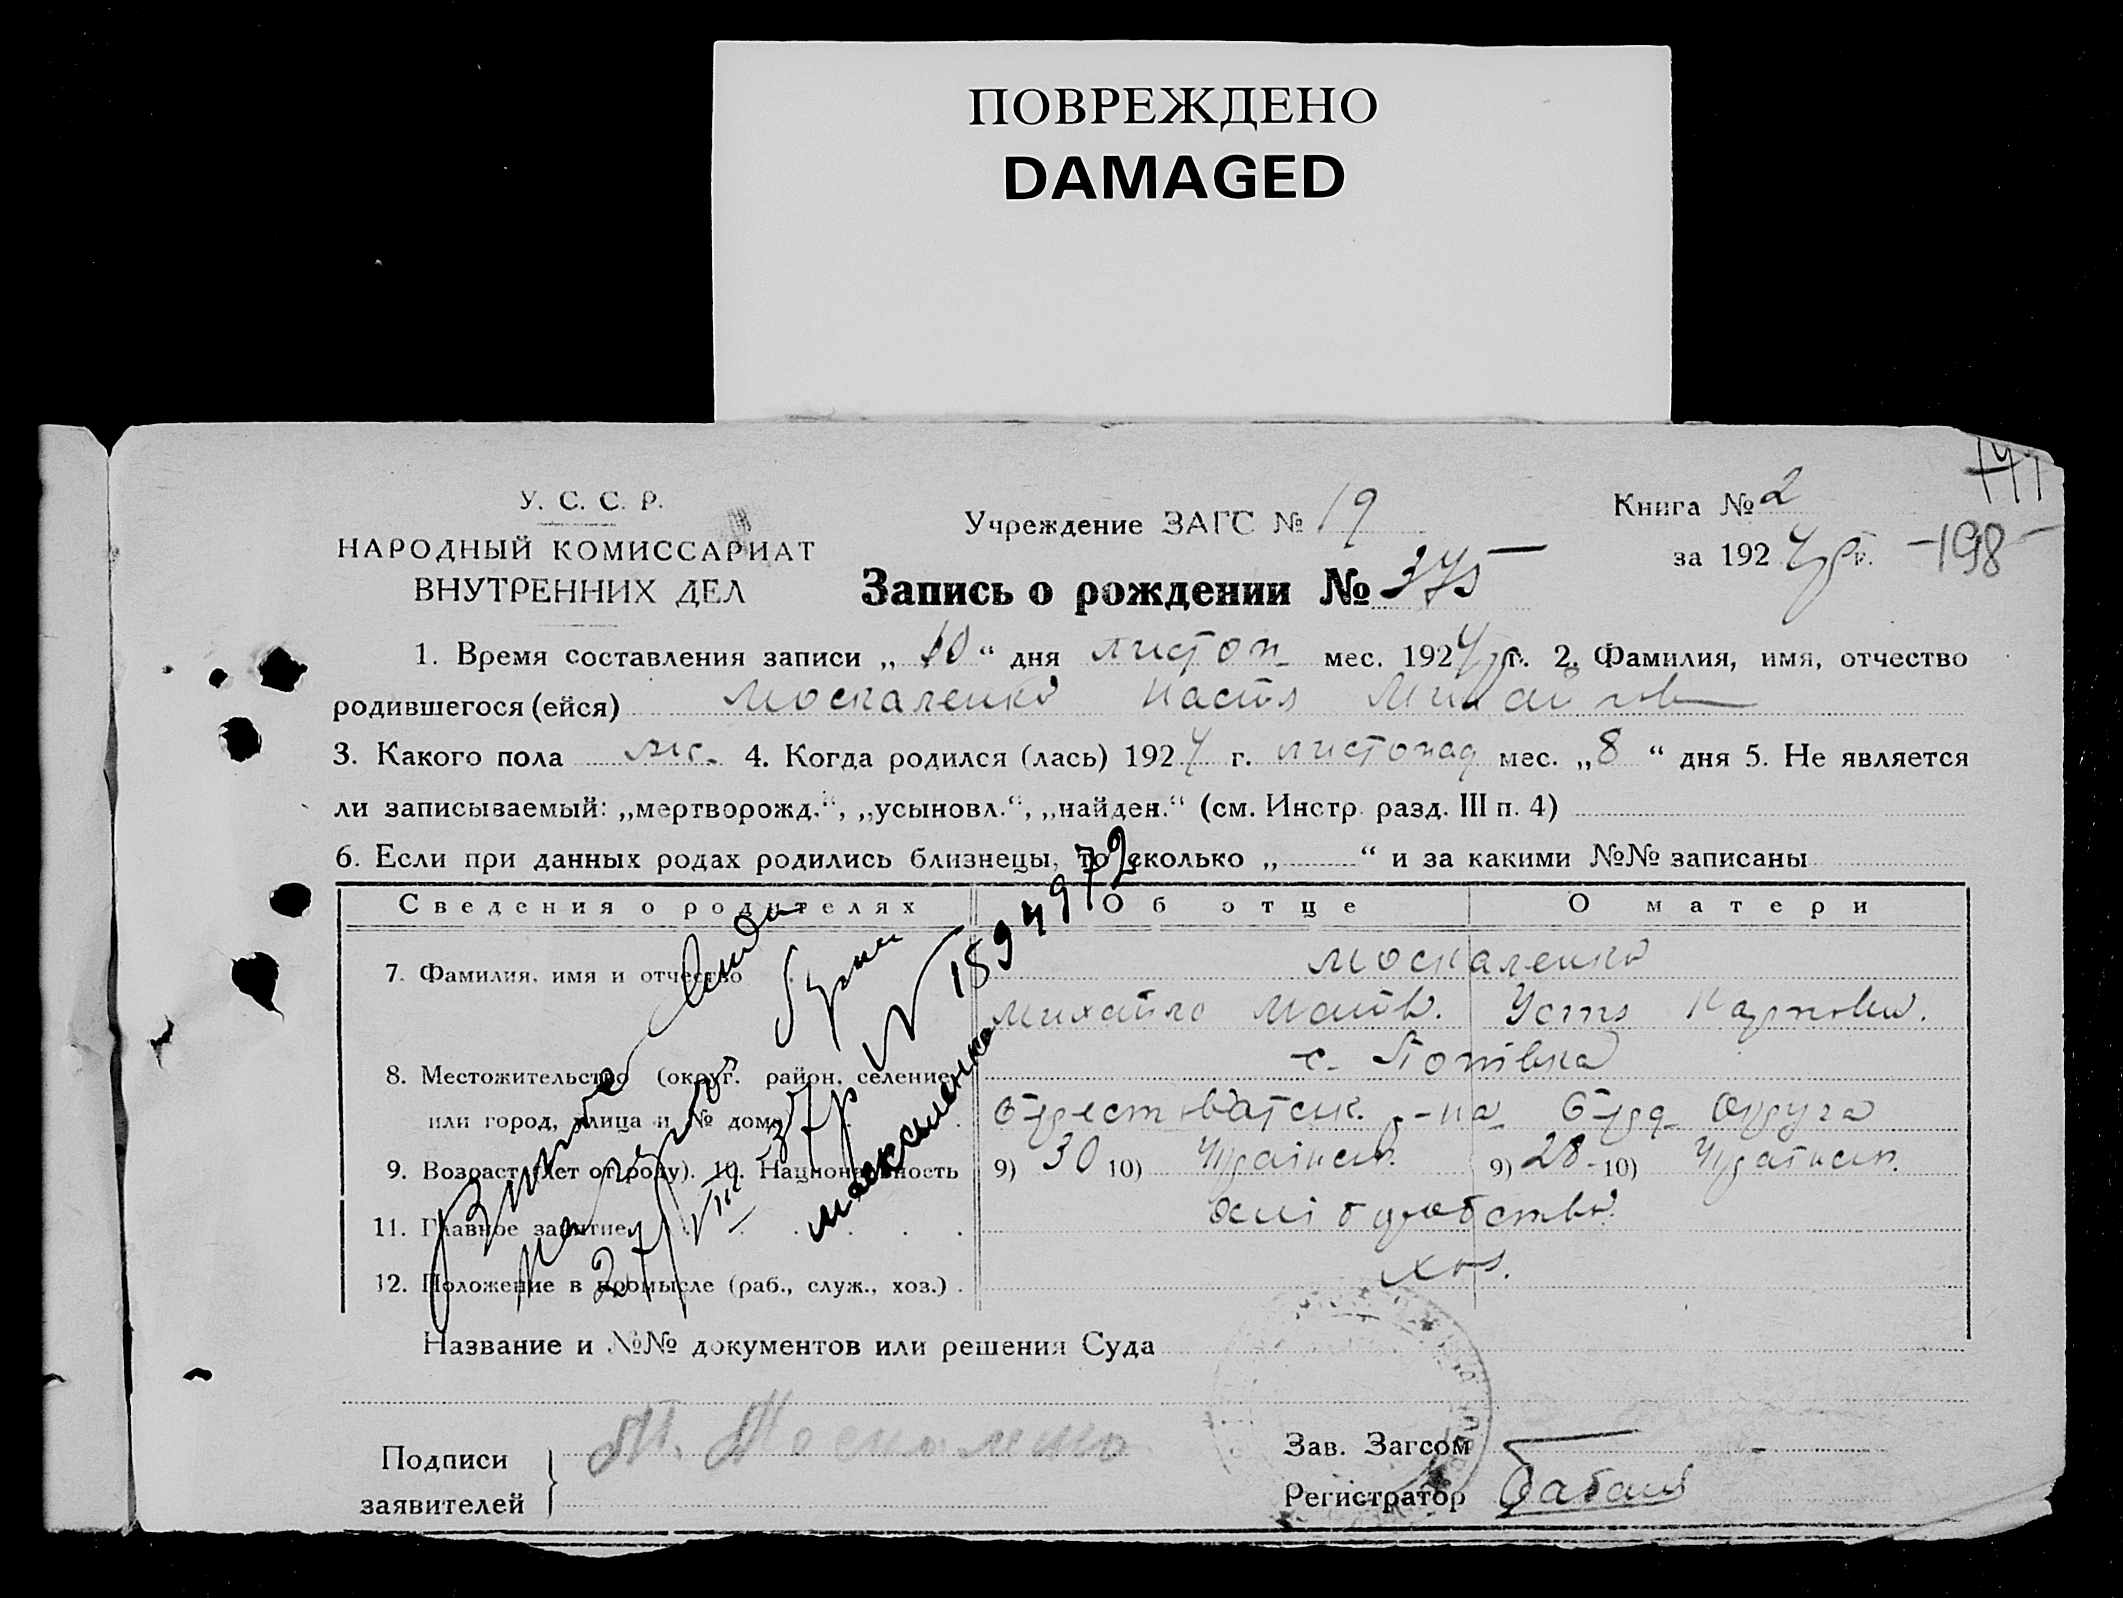 ПОВРЕЖДЕНО
DAMAGED
У. С. С. Р.
НАРОДНЫЙ КОМИССАРИАТ
ВНУТРЕННИХ ДЕЛ
Учреждение ЗАГС № 19
Книга № 2
за 1924 г. -198-
Запись о рождении № 375
1. Время составления записи „10“ дня листоп мес. 1924 г. 2. Фамилия, имя, отчество
родившегося (ейся) Москаленко Настя
3. Какого пола жс. 4. Когда родился (лась) 1924 г. листопад мес. „8“ дня 5. Не является
ли записываемый: „мертворожд.“, „усыновл.“, „найден.“ (см. Инстр. разд. III п. 4)
6. Если при данных родах родились близнецы, то сколько „ “ и за какими №№ записаны
Сведения о родителях Об отце О матери
7. Фамилия, имя и отчество Москаленко
Михайло Матв. Устя
8. Местожительство (округ. район, селение с. Попівка
или город, улица и № дома
9. Возраст (лет от роду). 10. Национальность 9) 30 10) Україиск. 9) 28 - 10) Україиск.
11. Главное занятие
12. Положение в промысле (раб., служ., хоз.) хоз.
Название и №№ документов или решения Суда
Подписи
заявителей
М. Москаленко
Зав. Загсом
Регистратор